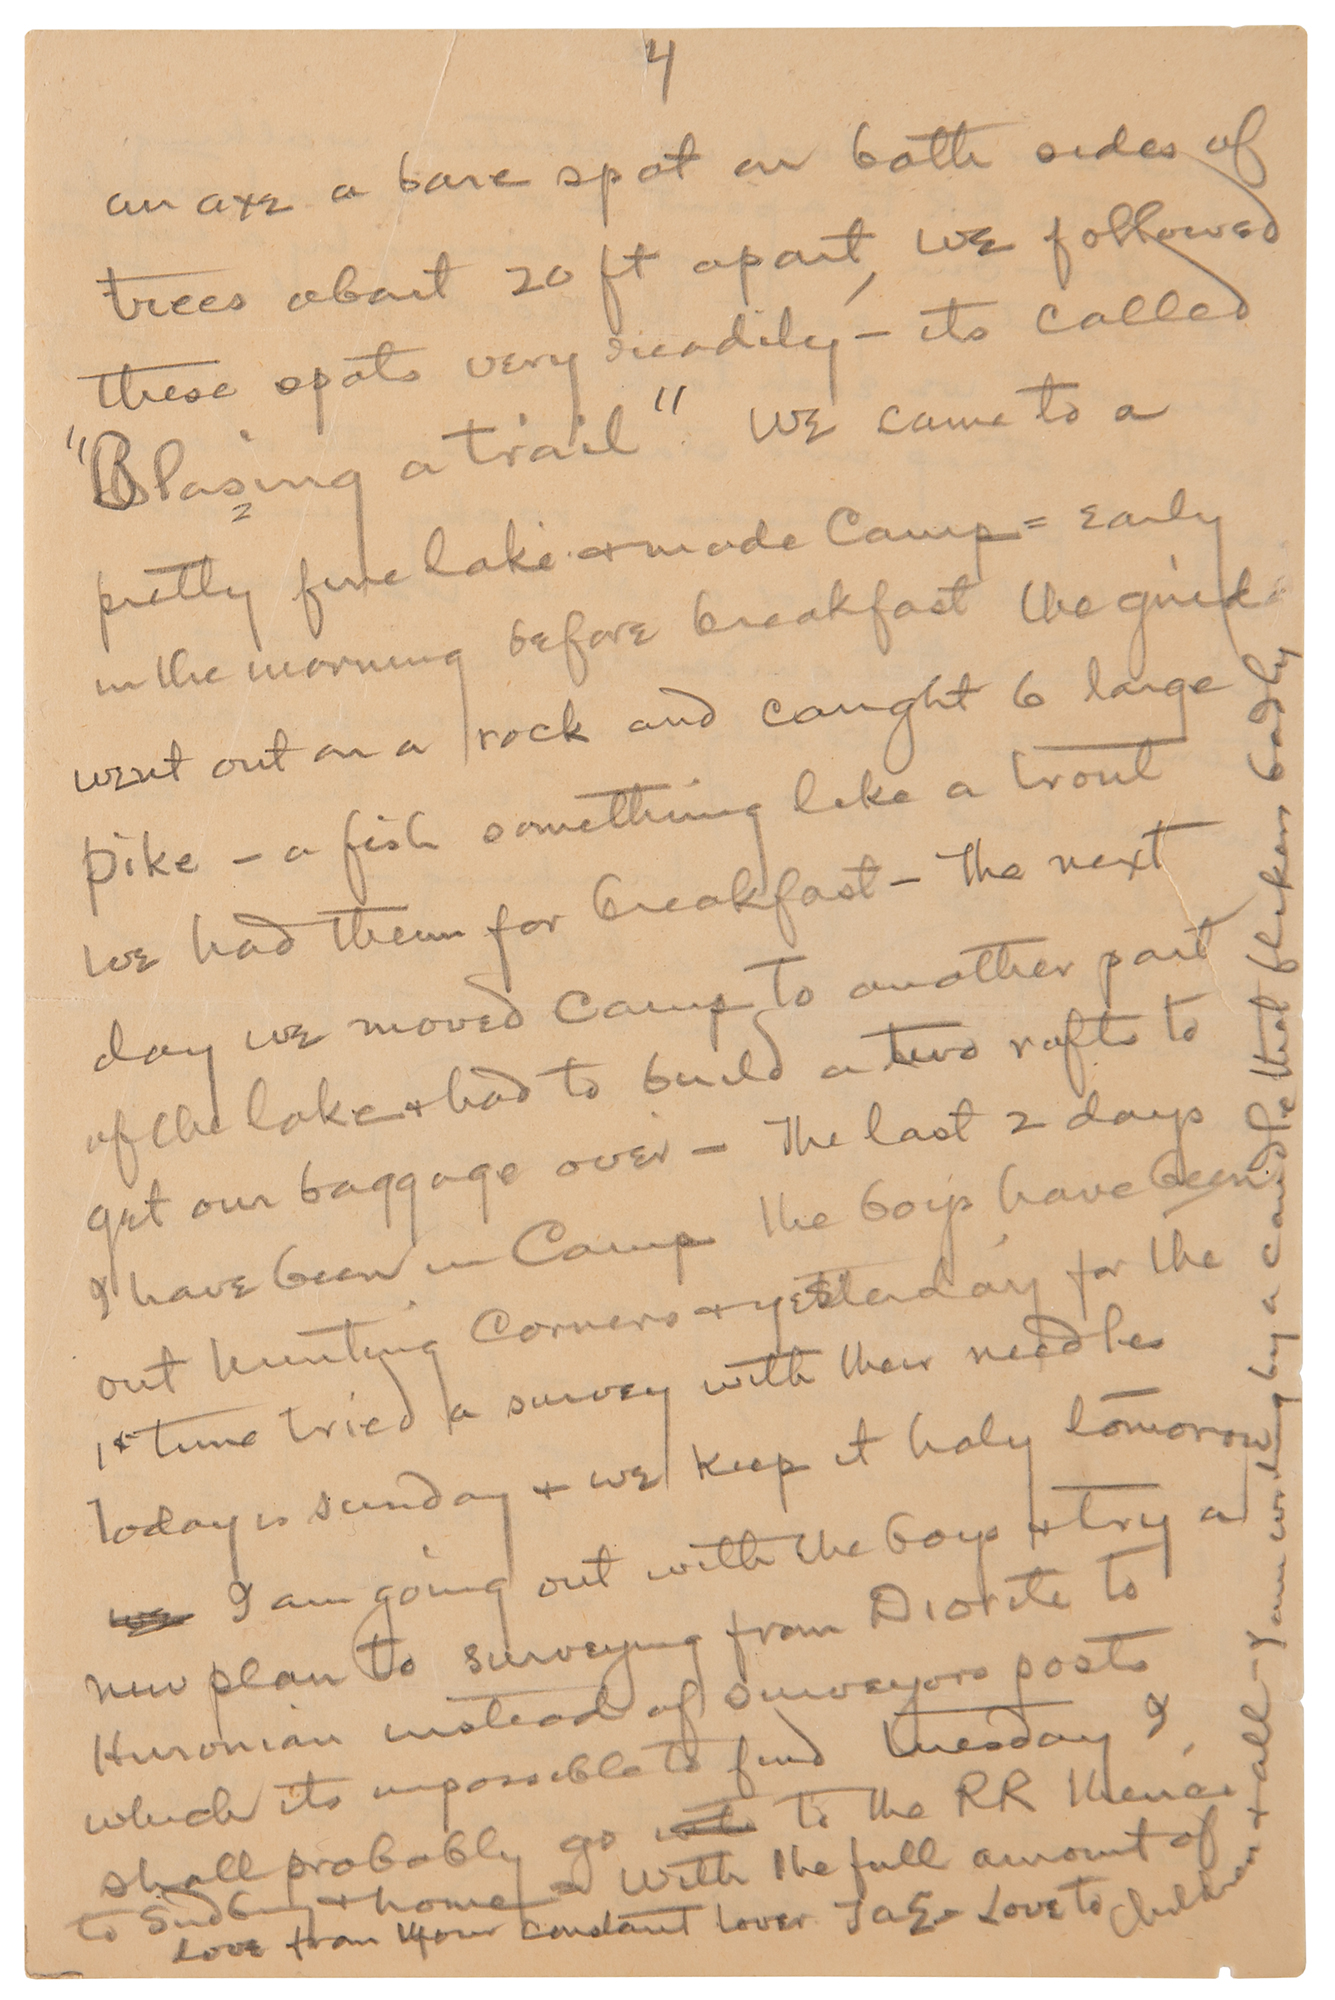 4
an axe a bare spot on both sides of
trees about 20 ft apart, we followed
these spots very readily — its called
"Blasing a trail" We came to a
z
pretty fine lake & made Camp = Early
in the morning before breakfast the guide
went out on a rock and caught 6 large
pike — a fish something like a trout
we had them for breakfast — The next
day we moved Camp to another part
of the lake & had to build a two rafts to
get our baggage over — The last 2 days
I have been in Camp the boys have been
out hunting Corners & yesterday for the
1st time tried a survey with their needles
Today is sunday & we keep it holy tomorrow
we I am going out with the boys & try a
new plan to surveying from Diorite to
Huronian instead of surveyors posts
which its impossible to find Tuesday I
shall probably go to the RR thence
to Sudbury & home — With the full amount of
love from Your constant lover TAE — Love to Children & all — I am working by a candle that flickers badly